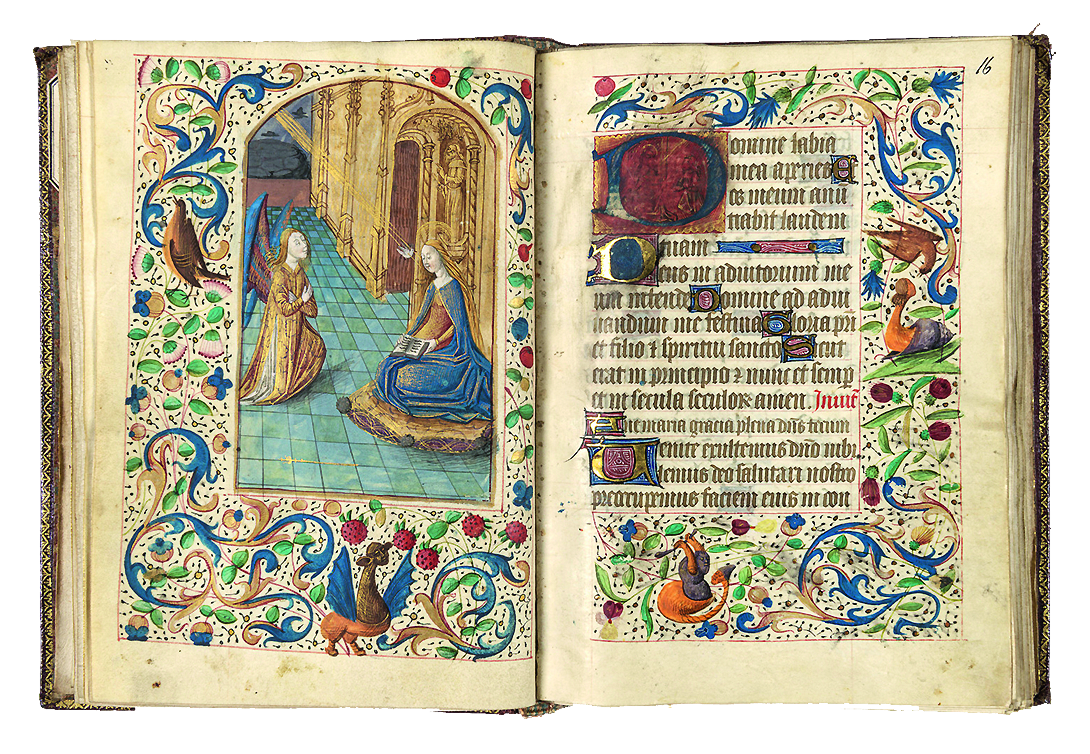 16
Domine labia
mea aperies E
os meum anū
tiabit laudem
tuam
Deus in adiutorium me
um intende Domine ad adiu
uandum me festina Gloria pr̄i
et filio ⁊ spiritui sancto Sicut
erat in principio ⁊ nunc et semp̄
et in secula seculoꝝ amen. Inuit̄
Aue maria gracia plena dn̄s tecum
Uenite exultemus dn̄o iubi
lemus deo salutari nostro
preocupemus faciem eius in con